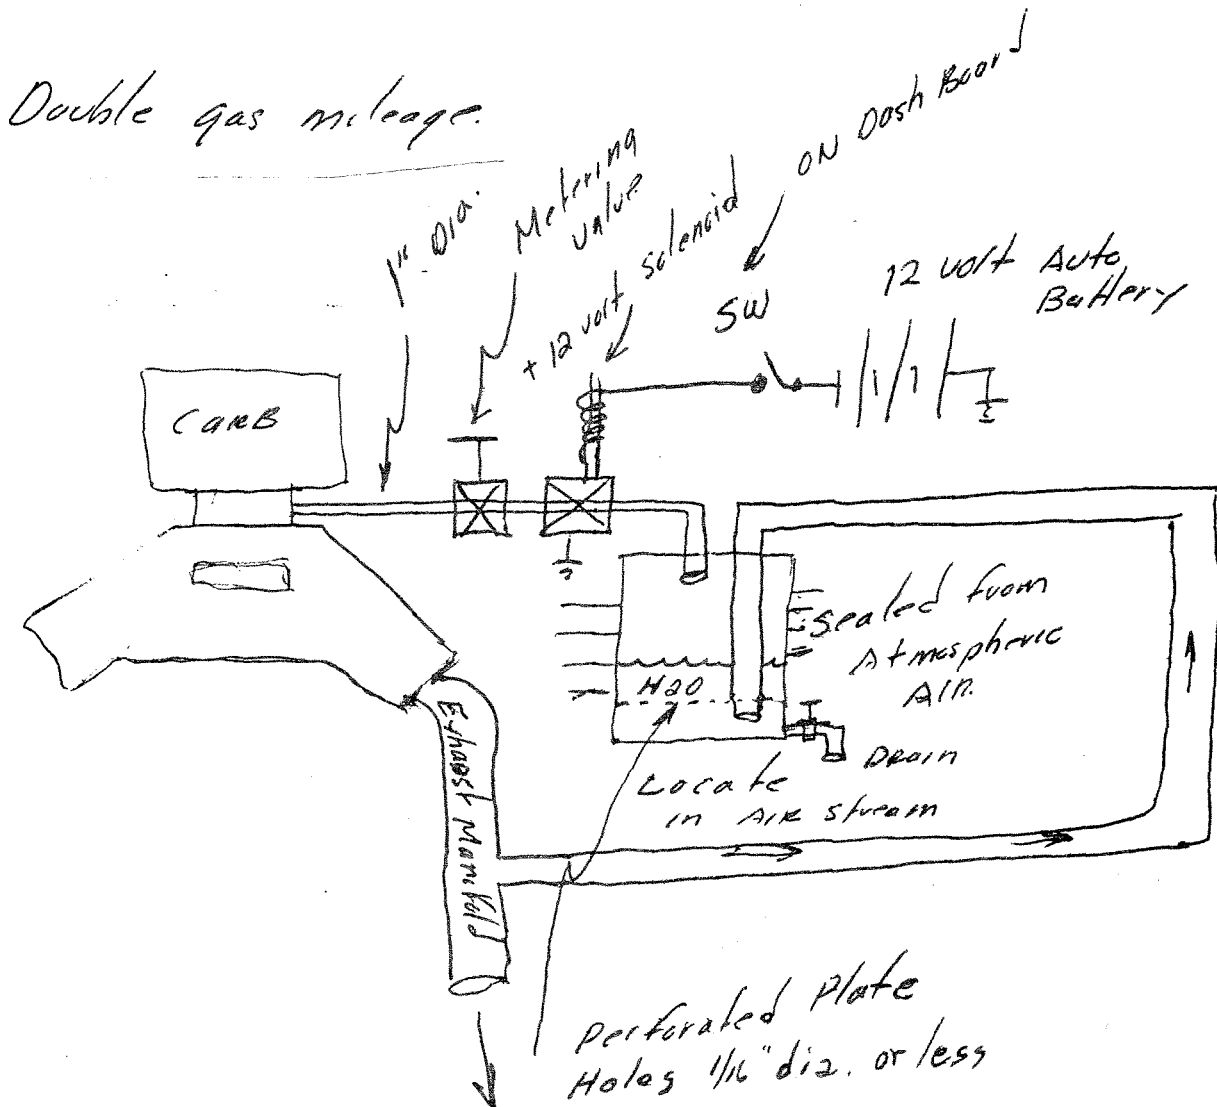 Double gas mileage.
1" Dia.
Metering
valve
+ 12 volt solenoid
ON Dash Board
SW
12 volt Auto
Battery
CARB
Sealed from
Atmospheric
AIR.
H2O
Drain
Locate
in AIR stream
Exhaust Manifold
Perforated Plate
Holes 1/16" dia. or less